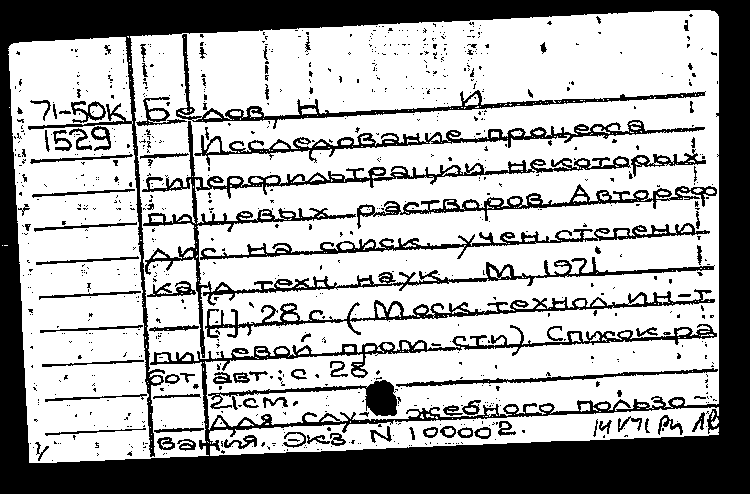 71-50к Белов, Н. И
1529 Исследование процесса
гиперфильтрации некоторых
пищевых растворов. Автореф
дис. на соиск. учен. степени
канд. техн. наук. М., 1971.
[1], 28 с. (Моск. технол. ин-т
пищевой пром-сти). Список ра
бот. авт.: с. 28.
21 см.
Для служебного пользо-
вания. Экз. N 100002.
14 V 71